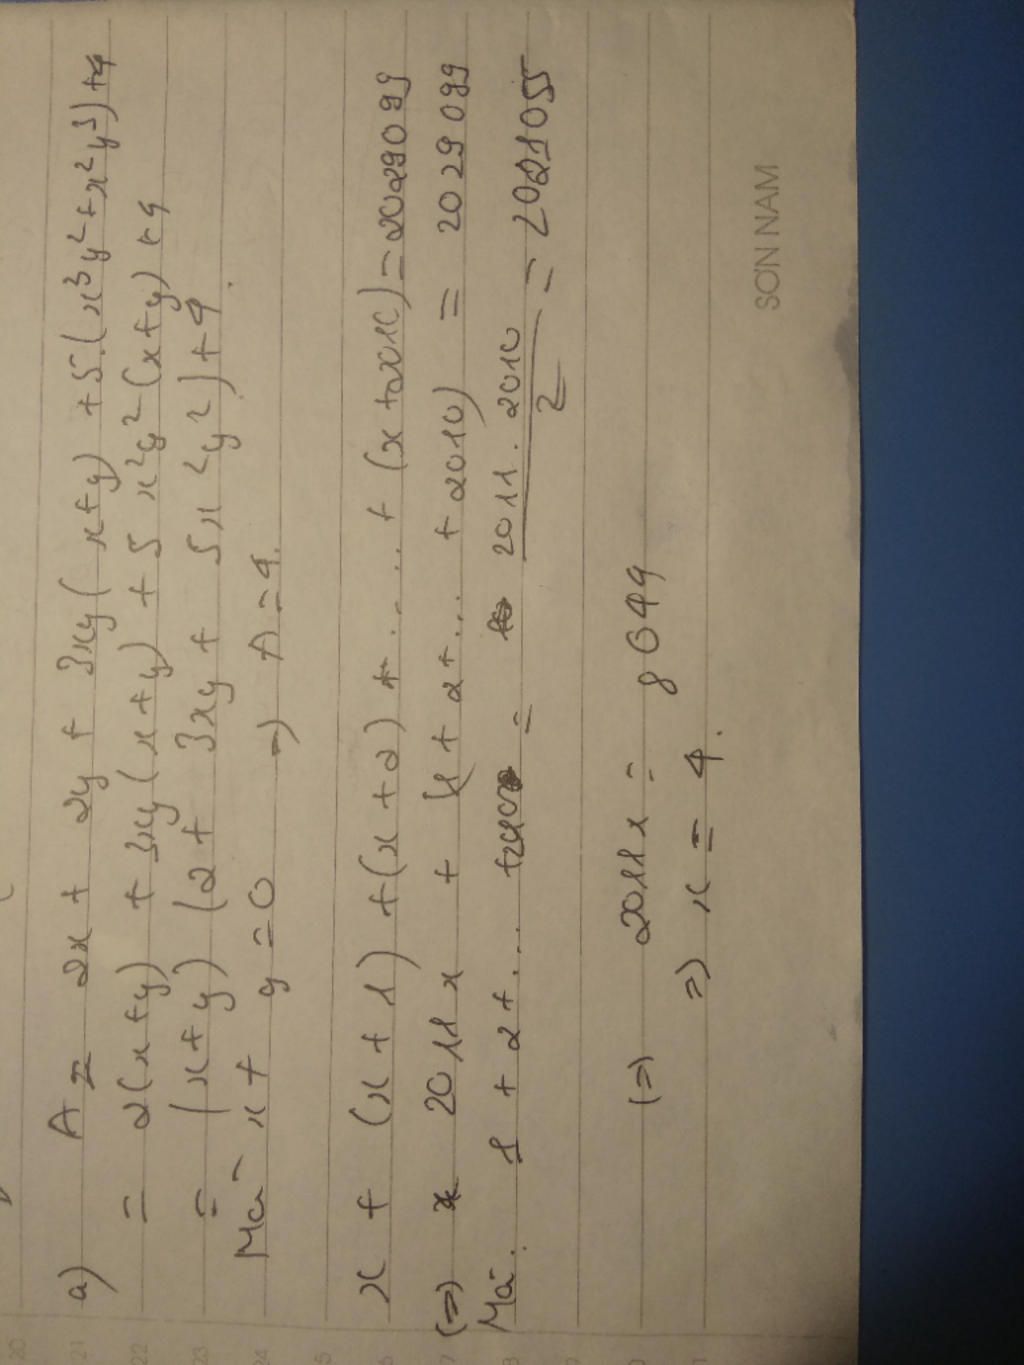 a) A = 2x + 2y + 3xy(x+y) + 5.(x³y²+x²y³)+4
= 2(x+y) + 3xy(x+y) + 5x²y²(x+y)+4
= (x+y)(2+3xy+5x²y²)+4.
Mà x+y=0 => A=4.
x + (x+1)+(x+2)+....+(x+2010)=2029099
(=) 2011x + (1+2+...+2010) = 2029099
Mà. 1+2+... = 2011.2010/2 = 2021055
(=) 2011x = 8049
=) x = 4.
SƠN NAM
20
21
22
23
24